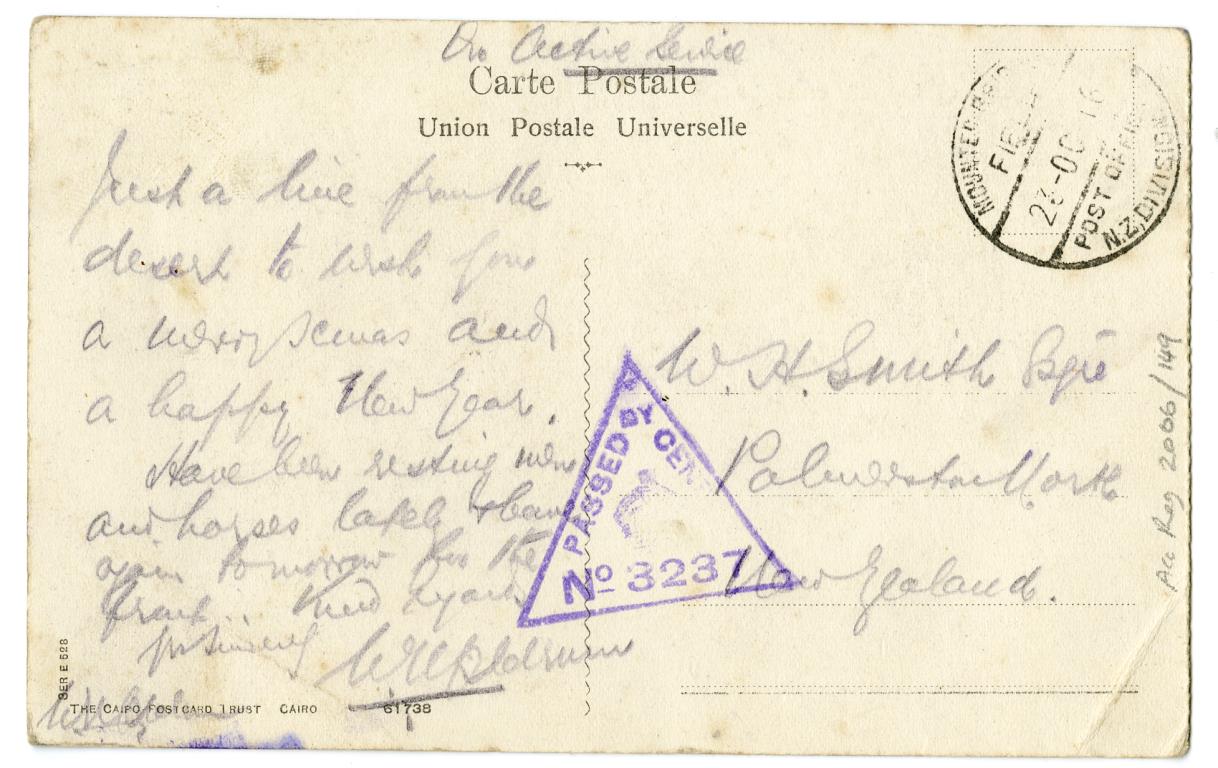 On Active Service
Carte Postale
Union Postale Universelle
Just a line from the
desert to wish you
a merry Xmas and
a happy New Year.
Have been resting men
and horses lately & leave
again tomorrow for the
front. Kind regards
yrs sincerely
SER E 528
THE CAIRO POSTCARD TRUST CAIRO 61738
MOUNTED
FIELD
23-OC 16
POST OFFICE
N.Z. DIVISION
W. H. Smith Esqre
Palmerston North
New Zealand.
PASSED BY CEN
No 3237
Acc Reg 2066/149